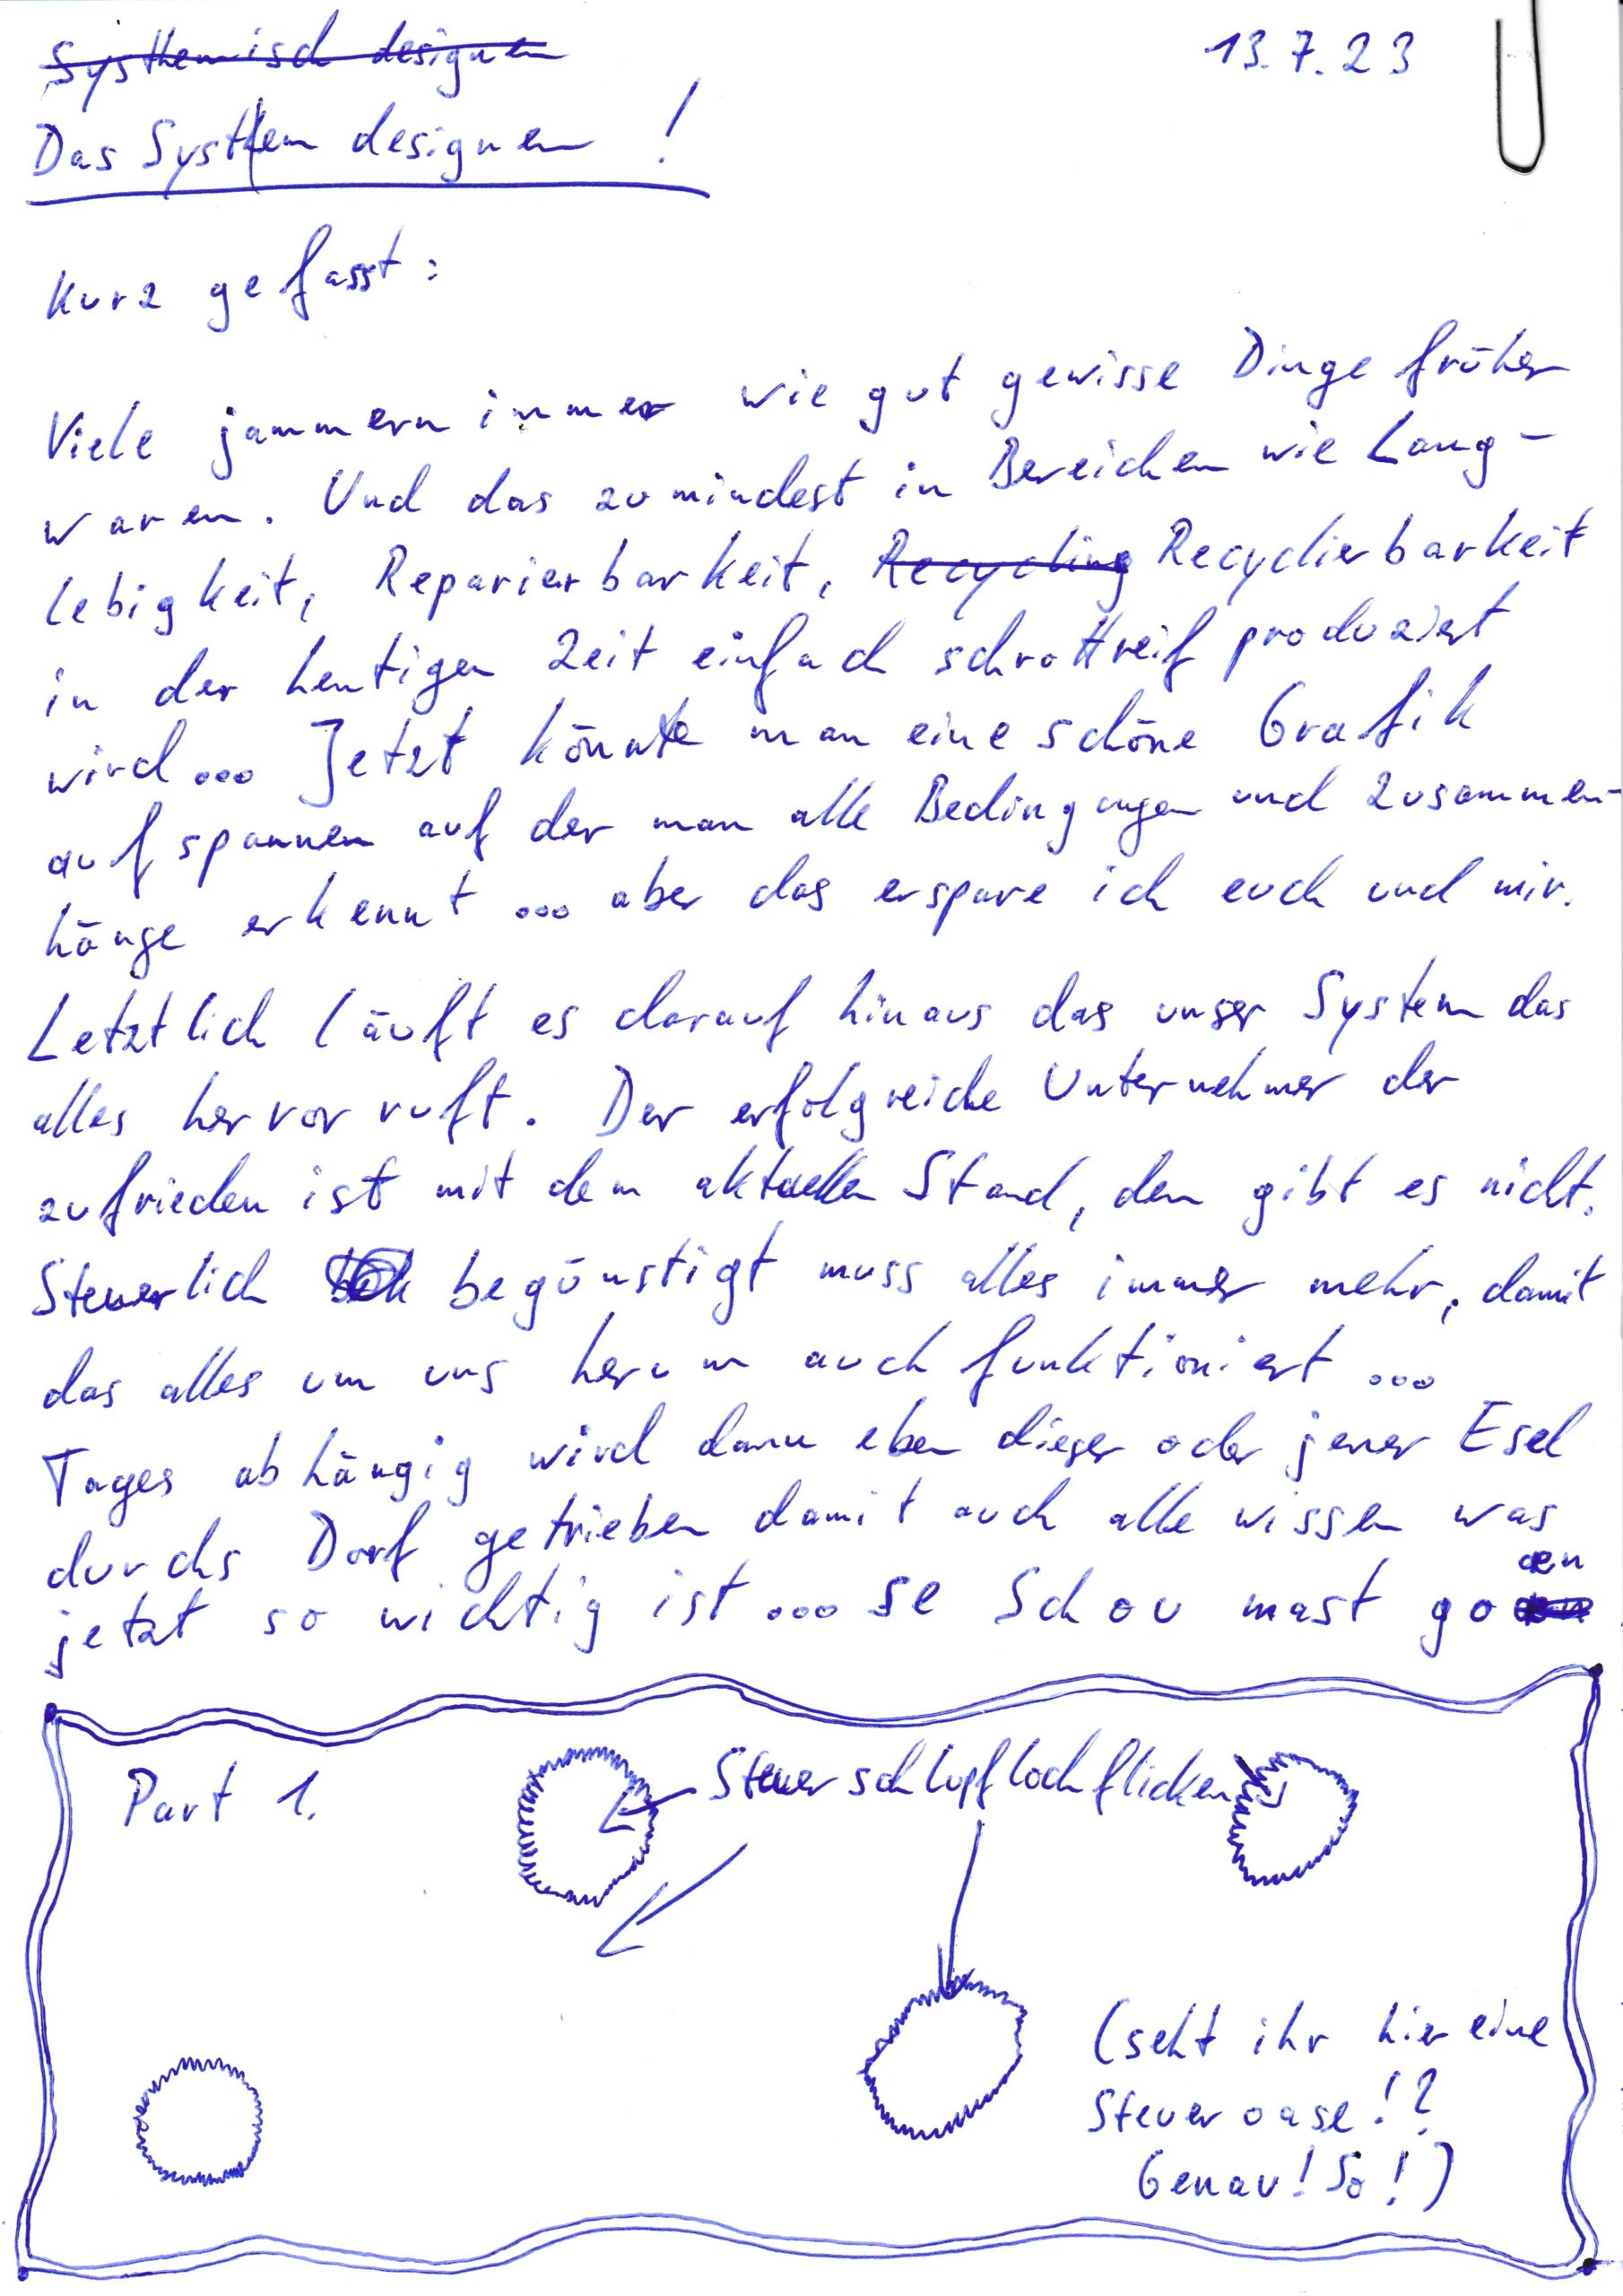 Systhemisch designen
13.7.23
Das System designen !
Kurz gefasst:
Viele jammern immer wie gut gewisse Dinge früher
waren. Und das zumindest in Bereichen wie Lang-
lebigkeit, Reparierbarkeit, Recycling Recyclierbarkeit
in der heutigen Zeit einfach schrottreif produziert
wird... Jetzt könnte man eine schöne Grafik
aufspannen auf der man alle Bedingungen und Zusammen-
hänge erkennt ... aber das erspare ich euch und mir.
Letztlich läuft es darauf hinaus das unser System das
alles hervorruft. Der erfolgreiche Unternehmer der
zufrieden ist mit dem aktuellen Stand, den gibt es nicht.
Steuerlich begünstigt muss alles immer mehr, damit
das alles um uns herum auch funktioniert ...
Tages abhängig wird dann eben dieser oder jener Esel
durchs Dorf getrieben damit auch alle wissen was
jetzt so wichtig ist ... se Schou mast go oen
Part 1.
Steuerschlupflochflicken
(seht ihr hier eine
Steueroase!?
Genau! So!)